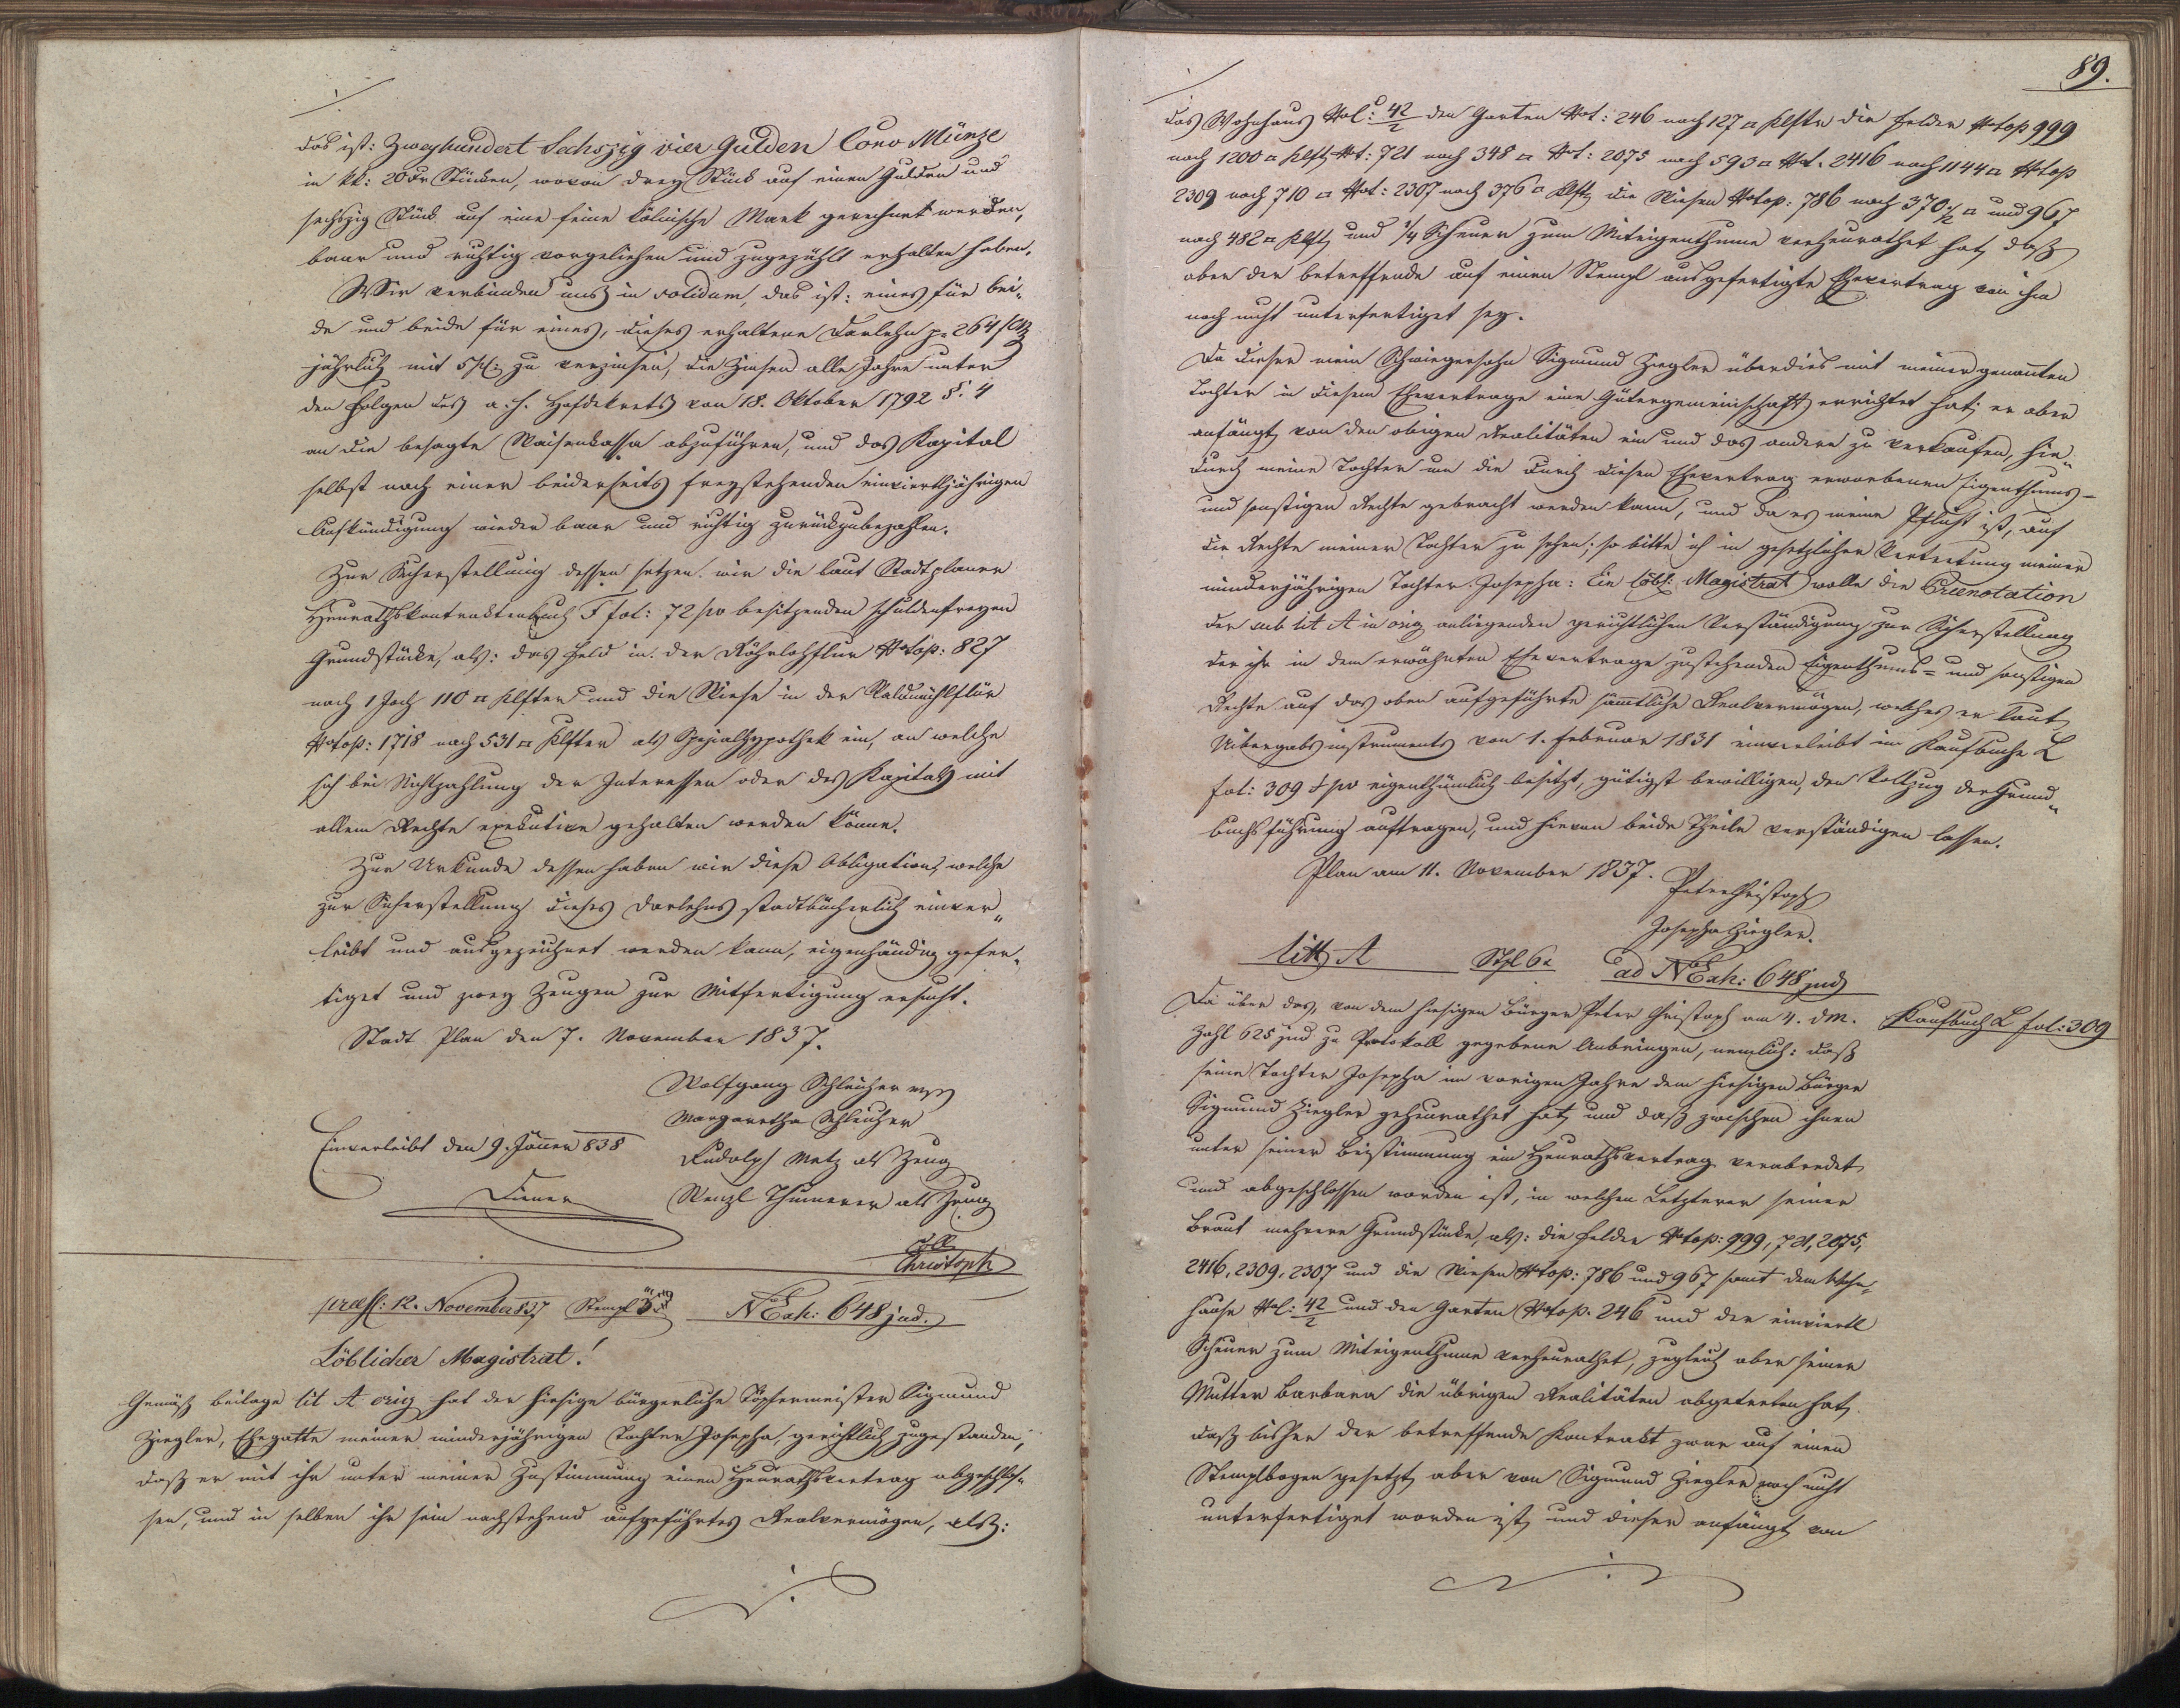 das ist: Zweyhundert Sechszig vier Gulden Conv Münze
in kk: 20 Xr Stücken, wovon drey Stück auf einen Gulden und
sechszig Stück auf eine feine Kölnische Mark gerechnet werden,
baar und richtig vorgeliehen und zugezählt erhalten haben.
Wir verbinden uns in solidum, das ist: eines für bei„
de und beide für eines, dieses erhaltene Darlehn p. 264 f CMz
jährlich mit 5 % zu verzinsen, die Zinsen alle Jahre unter
den Folgen des a. h. Hofdekrets von 18. Oktober 1792 §. 4
an die besagte Waisenkassa abzuführen, und das Kapital
selbst nach einer beiderseits freystehenden einvierteljährigen
Aufkündigung wieder baar und richtig zurückzubezahlen.
Zur Sicherstellung dessen setzen wir die laut Stadtplaner
Heurathskontraktenbuch F fol: 72 p v besitzenden schuldenfreyen
Grundstücke, als: das Feld in der Röhrlohflur Notop: 827
nach 1 Joch 110 □ Klafter und die Wiese in der Waldmühlflur
Notop: 1718 nach 531 □ Klafter als Spezialhypothek ein, an welche
sich bei Nichtzahlung der Interessen oder des Kapitals mit
allem Rechte exekutive gehalten werden könne.
Zur Urkunde dessen haben wir diese Obligation, welche
zur Sicherstellung dieses Darlehns stadtbücherlich einver„
leibt und ausgezeichnet werden kann, eigenhändig gefer„
tiget und zwey Zeugen zur Mitfertigung ersucht.
Stadt Plan den 7. November 1837.
Wolfgang Schleicher mp
Margaretha Schleicher
Einverleibt den 9. Jäner 838
Rudolph Metz als Zeug
Wenzl Thumerer als Zeug
Christoph
praes: 12. November 837 Stempl 3 NExh: 648 jud.
Löblicher Magistrat!
Gemäß beilage lit A orig hat der hiesige bürgerliche Töpfermeister Sigmund
Ziegler, Ehegatte meiner minderjährigen Tochter Josepha, gerichtlich zugestanden,
daß er mit ihr unter meiner Zustimmung einen Heurathsvertrag abgeschlos„
sen, und in selben ihr sein nachstehend aufgeführtes Realvermögen, als:
89.
das Wohnhaus Nol: 42/2 den Garten Not: 246 nach 127 □ Klftr die Felder Notop 999
nach 1200 □ Klft Not: 721 nach 348 □ Not: 2075 nach 593 □ Not. 2416 nach 1144 □ Notop
2309 nach 710 □ Not: 2307 nach 376 □ Klft die Wiesen Notop: 786 nach 370 1/2 □ und 967
nach 482 □ Klft und 1/4 Scheuer zum Miteigenthume verheurathet hat, daß
aber der betreffende auf einen Stempl ausgefertigte Ehevertrag von ihm
noch nicht unterfertiget sey.
Da dieser mein Schwiegersohn Sigmund Ziegler überdies mit meiner genannten
Tochter in diesem Ehevertrage eine Gütergemeinschaft errichtet hat, er aber
anfängt, von den obigen Realitäten ein und das andere zu verkaufen, hie„
durch meine Tochter um die durch diesen Ehevertrag erworbenen Eigenthums-
und sonstigen Rechte gebracht werden kann, und da es meine Pflicht ist, auf
die Rechte meiner Tochter zu sehen; so bitte ich in gesetzlicher Vertretung meiner
minderjährigen Tochter Josepha: Ein löbl: Magistrat wolle die Prænotation
der sub lit A in orig anliegenden gerichtlichen Verständigung zur Sicherstellung
der ihr in dem erwähnten Ehevertrage zustehenden Eigenthums= und sonstigen
Rechte auf das oben aufgeführte sämmtliche Realvermögen, welches er laut
Uibergabsinstruments von 1. Februar 1831 einverleibt im Kaufbuche L
fol: 309 p v eigenthümlich besitzt, gütigst bewilligen, den Vollzug der Grund„
buchsführung auftragen, und hievon beide Theile verständigen lassen.
Plan am 11. November 1837.
Peter Christoph
Josepha Ziegler.
litt A Stpl 6 x ad NExh: 648 jud
Kaufbuch L fol: 309
Da über das, von dem hiesigen Bürger Peter Christoph am 4. d M.
Zahl 625 jud zu Protokoll gegebene Anbringen, nemlich: daß
seine Tochter Josepha im vorigen Jahre dem hiesigen Bürger
Sigmund Ziegler geheurathet hat, und daß zwischen ihnen
unter seiner Beistimmung ein Heurathsvertrag verabredet
und abgeschlossen worden ist, in welchen Letzterer seiner
Braut mehrere Grundstücke, als: die Felder Notop: 999, 721, 2075,
2416, 2309, 2307 und die Wiesen Notop: 786 und 967 samt dem Wohn„
hause Nol: 42/2 und den Garten Notop. 246 und der einviertl
Scheuer zum Miteigenthume verheurathet, zugleich aber seiner
Mutter Barbara die übrigen Realitäten abgetreten hat,
daß bisher der betreffende Kontrakt zwar auf einen
Stemplbogen gesetzt, aber von Sigmund Ziegler noch nicht
unterfertiget worden ist, und dieser anfängt von